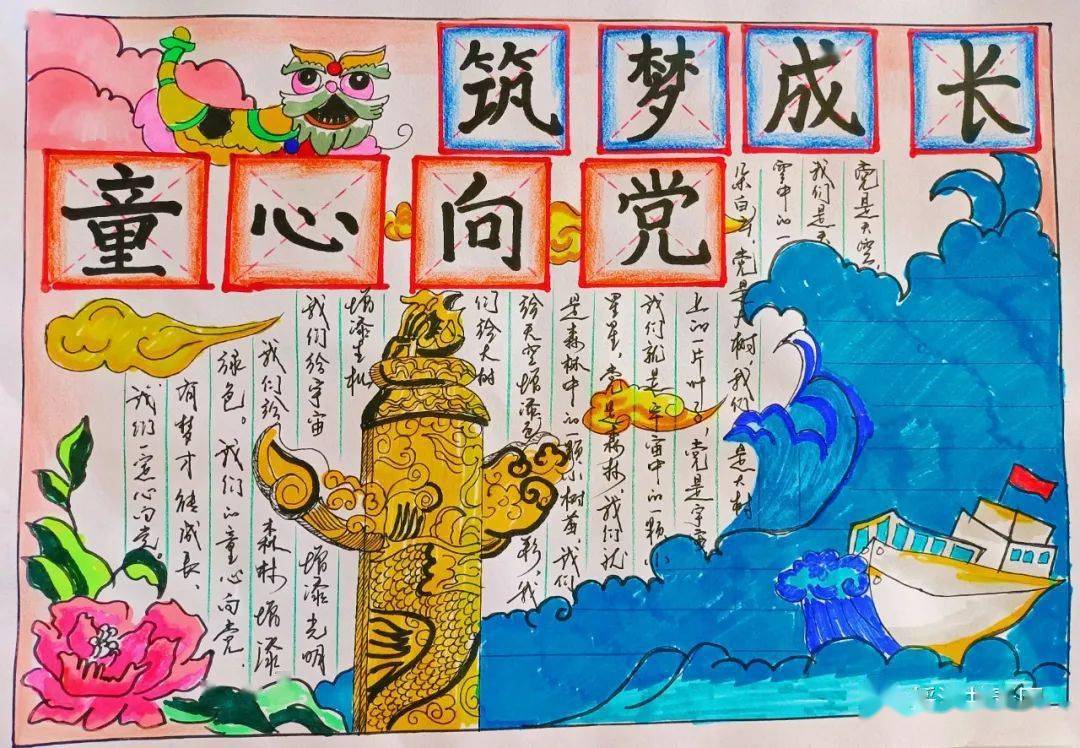 筑梦成长
童心向党
党是天空，
我们是天
空中的一
朵白云，党是大树我们是大树
上的一片叶子，党是宇宙
我们就是宇宙中的一颗
星星，党是森林我们就
是森林中的一颗小树苗，我们
给天空增添色彩，我
们给大树
增添生机
我们给宇宙增添光明
我们给森林增添
绿色。我们的童心向党.
有梦才能成长
我们一定心向党。